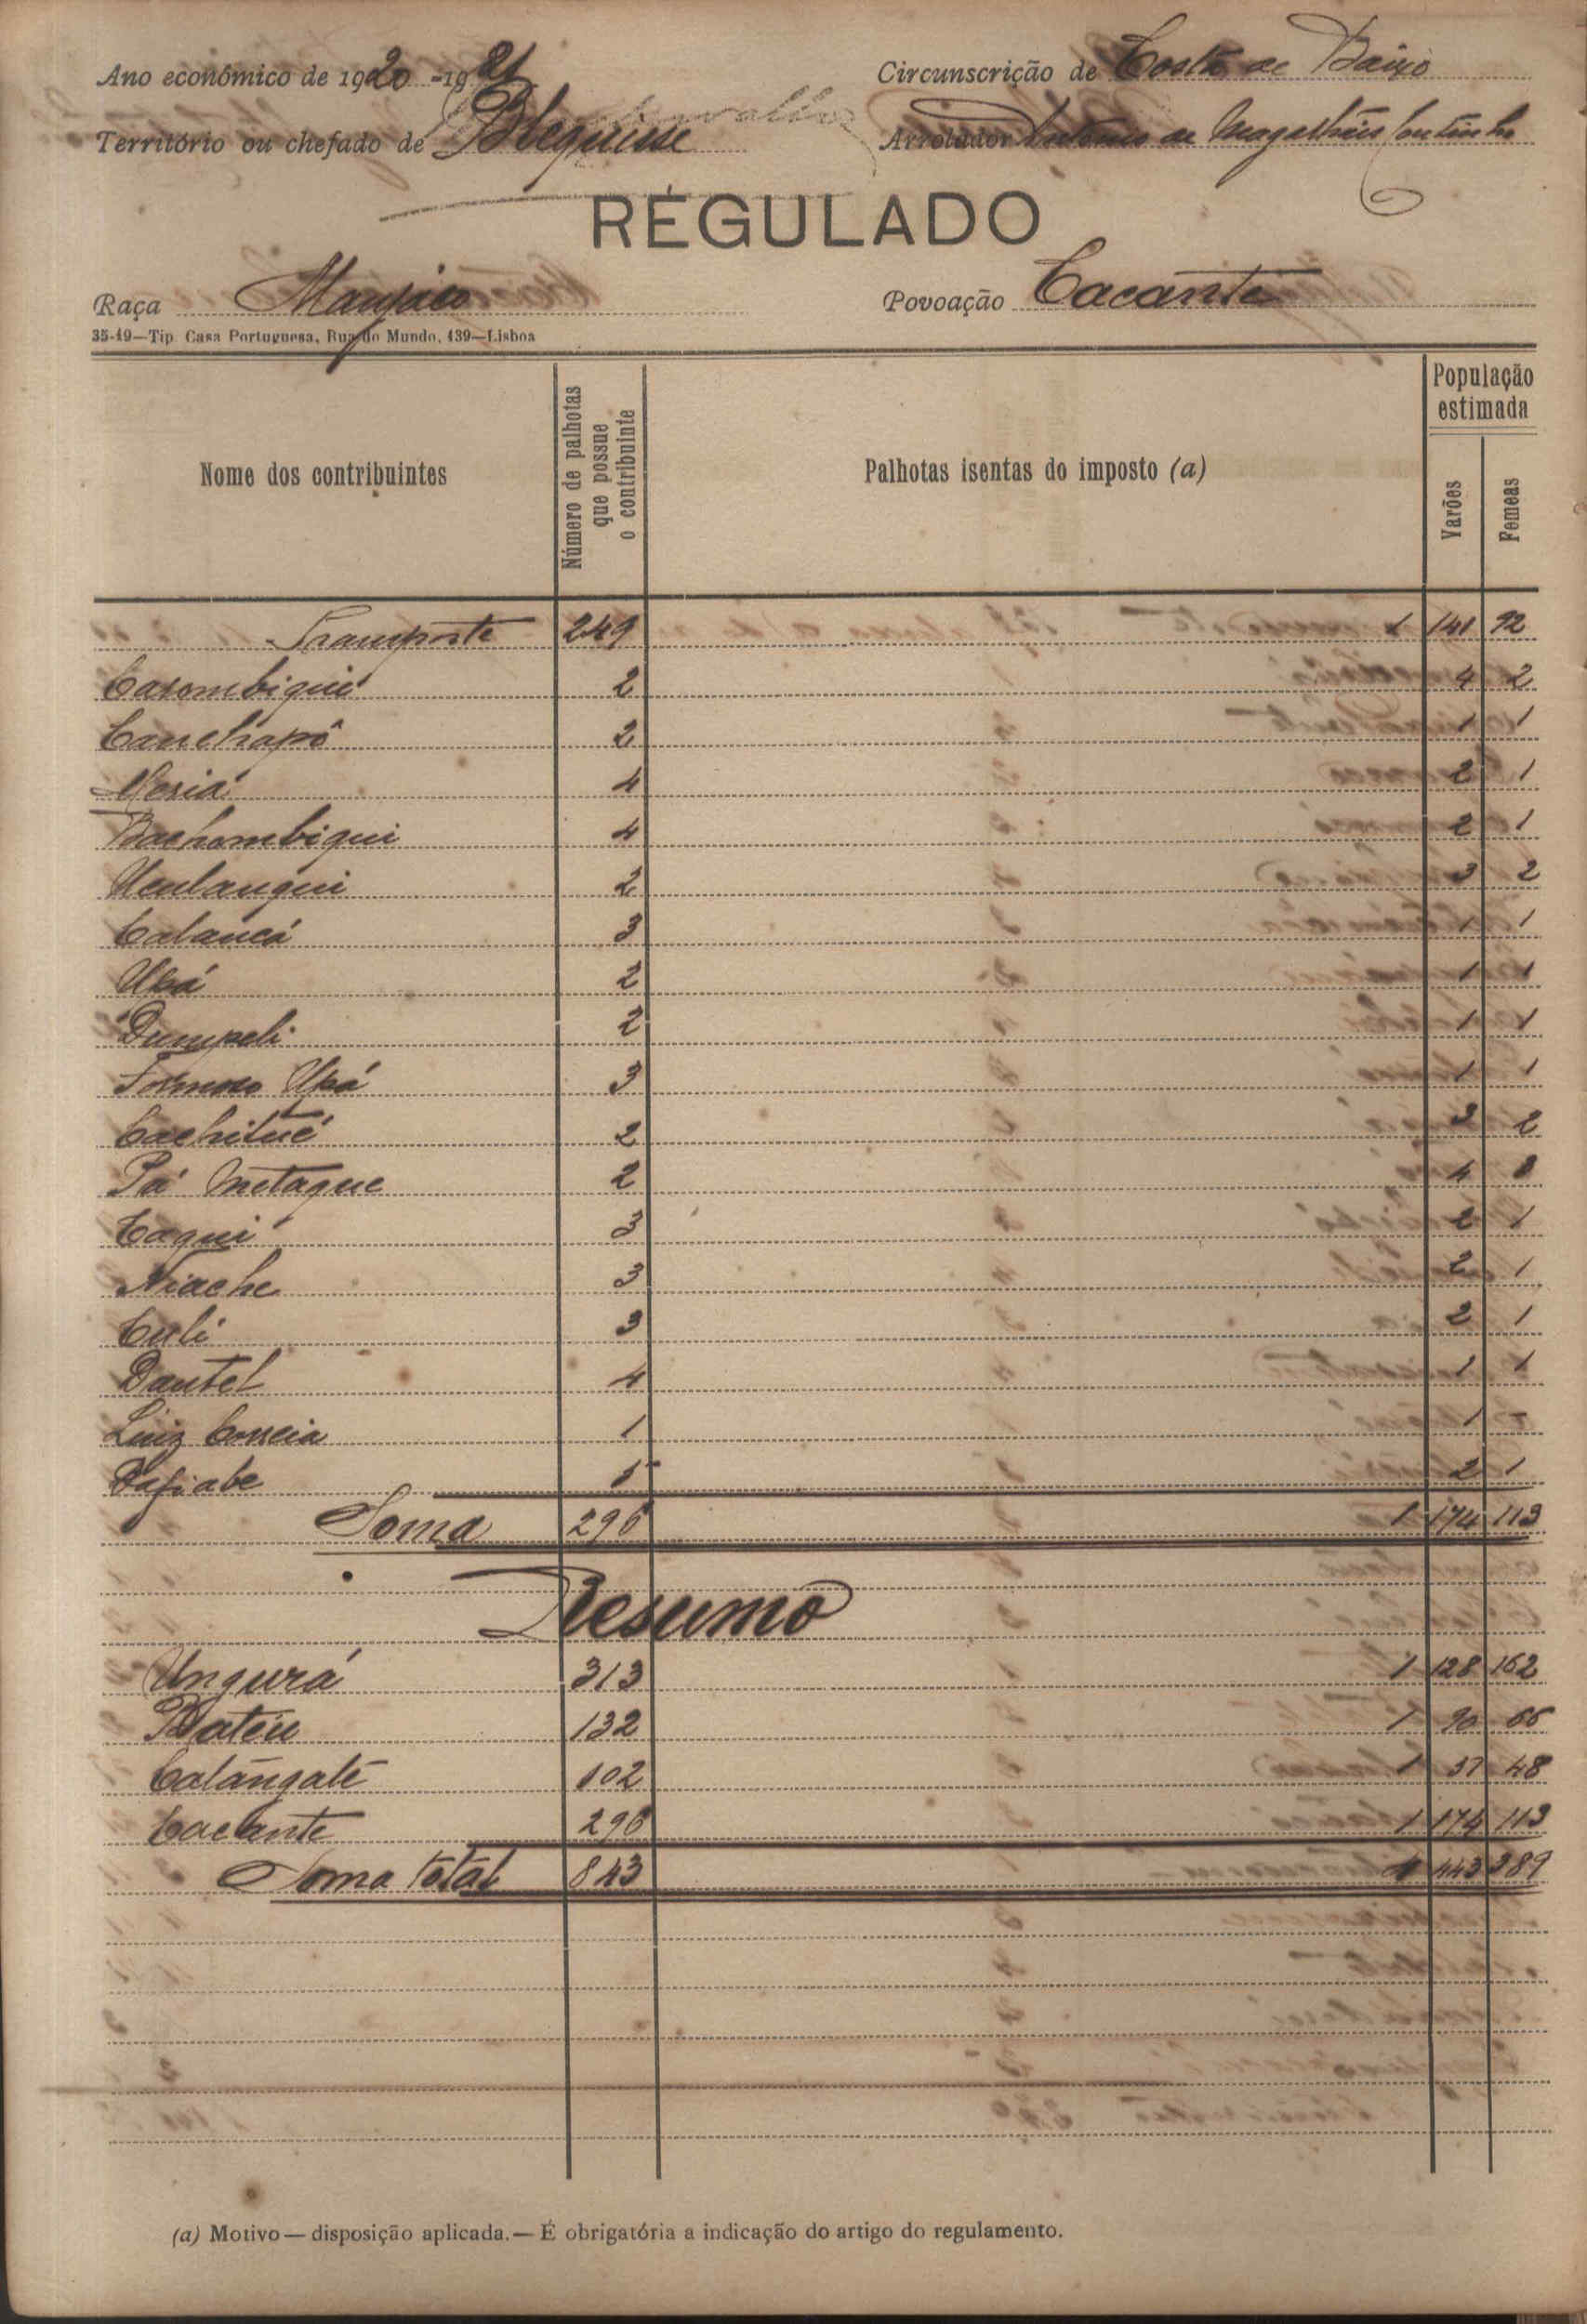 Ano económico de 1920-1921
Circunscrição de Costa de Baixo
Território ou chefado de Blequisse
Arrolador António de Magalhães Coutinho
REGULADO
Raça Manjaco
Povoação Cacante
35-19—Tip Casa Portuguesa, Rua do Mundo, 139—Lisboa
Nome dos contribuintes
Número de palhotas que possue o contribuinte
Palhotas isentas do imposto (a)
População estimada
Varões
Femeas
Transporte 249 1 141 92
Casombiqui 2 4 2
Canchapô 2 1 1
4 2 1
Bachombiqui 4 2 1
Uculangui 2 3 2
Calancá 3 1 1
Ucá 2 1 1
Dumpeli 2 1 1
Formoso Ucá 3 1 1
Cachitué 2 3 2
Pá Metague 2 4
Caqui 3 2 1
Niache 3 2 1
Culi 3 2 1
Dantel 4 1 1
Luiz Correia 1 1 -
Dafiabe 5 2 1
Soma 296 1 174 113
Resumo
Ungurá 313 1 128 162
Batéu 132 1 90 66
Calangate 102 1 51 48
Cacante 296 1 174 113
Soma total 843 4 443 389
(a) Motivo — disposição aplicada. — É obrigatória a indicação do artigo do regulamento.